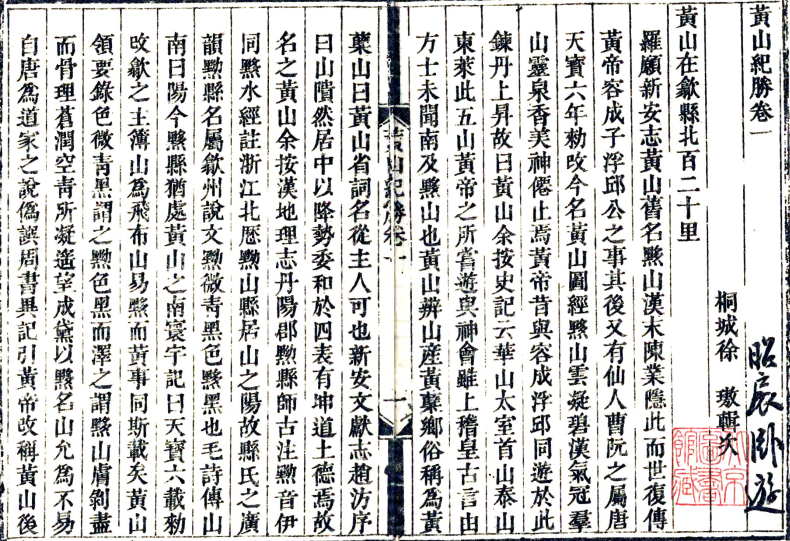 黃山紀勝卷一
桐城徐　璈輯次
黃山在歙縣北百二十里
羅願新安志黃山舊名黟山漢末陳業隱此而世復傳
黃帝容成子浮邱公之事其後又有仙人曹阮之屬唐
天寶六年勅改今名黃山圖經黟山雲凝碧漢氣冠羣
山靈泉香美神僊止焉黃帝昔與容成浮邱同遊於此
鍊丹上昇故曰黃山余按史記云華山太室首山泰山
東萊此五山黃帝之所嘗遊與神會雖上稽皇古言由
方士未聞南及黟山也黃山辨山産黃蘗鄉俗稱爲黃
蘗山曰黃山省詞名從主人可也新安文獻志趙汸序
曰山隤然居中以降勢委和於四表有坤道土德焉故
名之黃山余按漢地理志丹陽郡黝縣師古注黝音伊
同黟水經註浙江北歷黟山縣居山之陽故縣氏之廣
韻黟縣名屬歙州說文黝微青黑色黟黑也毛詩傳山
南曰陽今黟縣猶處黃山之南寰宇記曰天寶六載勅
改歙之主簿山爲飛布山易黟而黃事同斯載矣黃山
領要錄色微青黑謂之黝色黑而澤之謂黟山膚剝盡
而骨理蒼潤空青所凝遙望成黛以黟名山允爲不易
自唐爲道家之說僞誤周書異記引黃帝改稱黃山後
黃山紀勝卷一
一